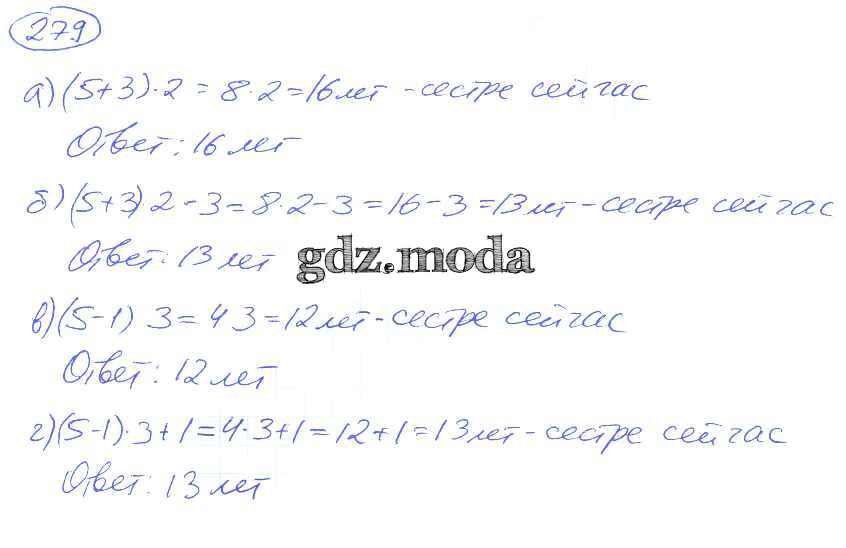 279
а) (5+3)·2 = 8·2 = 16 лет - сестре сейчас
Ответ: 16 лет
б) (5+3) 2 - 3 = 8·2 - 3 = 16 - 3 = 13 лет - сестре сейчас
Ответ: 13 лет
gdz.moda
в) (5-1) 3 = 4 3 = 12 лет - сестре сейчас
Ответ: 12 лет
г) (5-1)·3+1 = 4·3+1 = 12+1 = 13 лет - сестре сейчас
Ответ: 13 лет